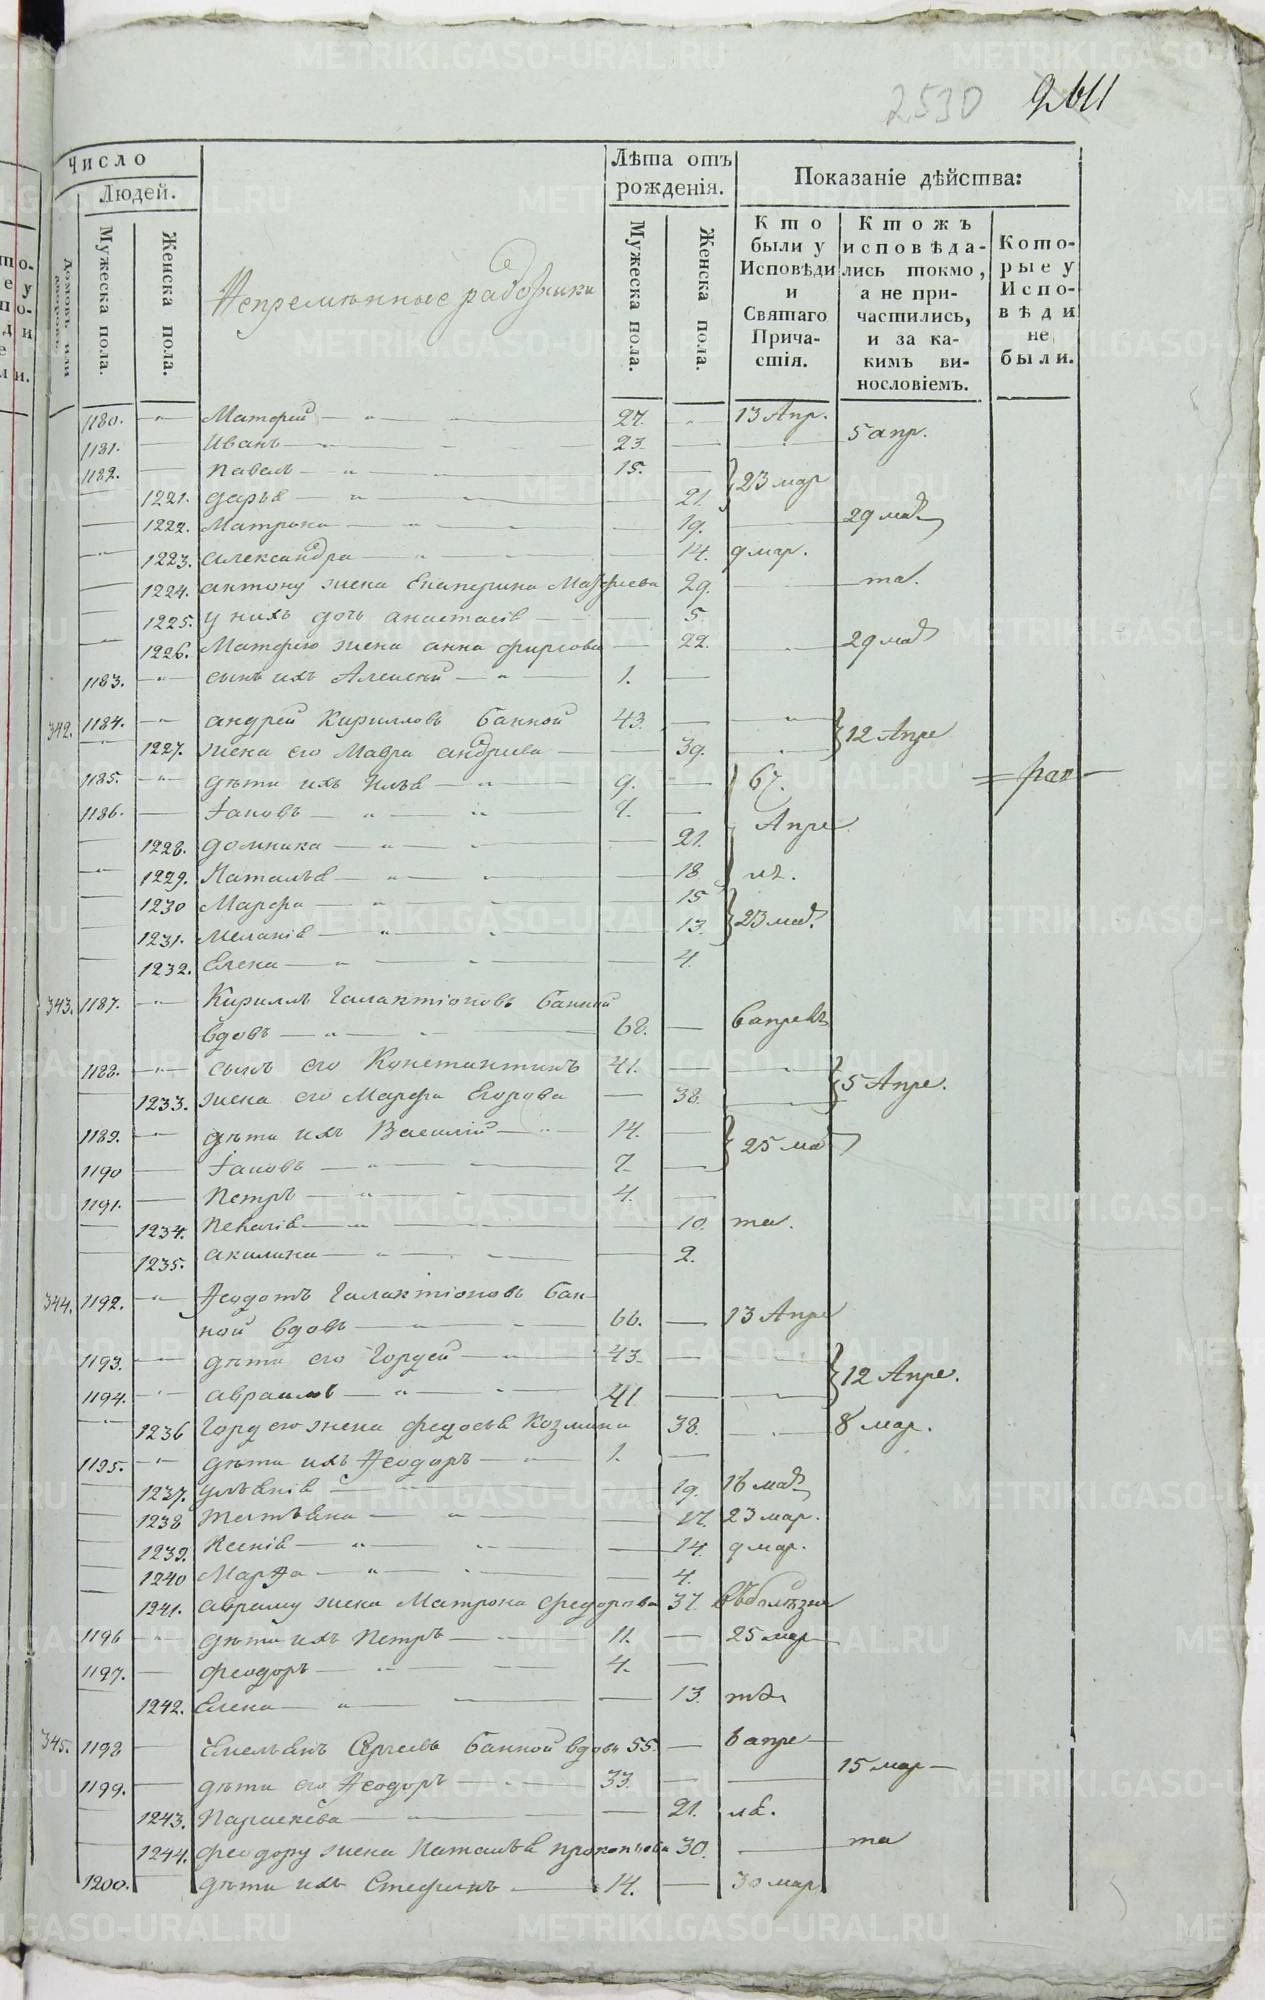 2530 2611
Число
Людей.
Домовъ или дворовъ.
Мужеска пола.
Женска пола.
Непремѣнные работники
Лѣта отъ рожденія.
Мужеска пола.
Женска пола.
Показаніе дѣйства:
Кто были у Исповѣди и Святаго Причастія.
Ктожъ исповѣдались токмо, а не причастились, и за какимъ винословіемъ.
Которые у Исповѣди не были.
1180. Матфей 27. 13 Апр.
1181. Иванъ 23. 5 апр.
1182. Павелъ 15. 23 мар
1221. дарья 21.
1222. Матрона 19. 29 мар
1223. александра 14. 9 мар.
1224. антону жена Екатерина Матфиева 29. та.
1225. у нихъ дочь анастасія 5.
1226. Матфею жена анна фирсова 22. 29 мар
1183. сынъ ихъ Алексѣй 1.
342. 1184. андрей Кирилловъ Банной 43. 12 Апре
1227. жена его Мавра андреева 39.
1185. дѣти ихъ Илья 9. 67.
1186. Іаковъ 7. Апре
1228. домника 21.
1229. Наталья 18. ля.
1230 Марфа 15
1231. меланія 13. 23 мар
1232. Елена 4.
343. 1187. Кириллъ Галактіоновъ Банной
вдовъ 68. 6 апреля
1188. сынъ его Константинъ 41. 5 Апре.
1233. жена его Марфа Егорова 38.
1189. дѣти ихъ Василій 14. 25 мар
1190 Іаковъ 7.
1191. Петръ 4.
1234. Пелагія 10. та.
1235. акилина 2.
344. 1192. Ѳеодотъ Галактіоновъ Бан-
ной вдовъ 66. 13 Апре
1193. дѣти его Гордей 43. 12 Апре.
1194. авраамъ 41
1236 Горд его жена федосья Козмина 38. 8 мар.
1195. дѣти ихъ Ѳеодоръ 1.
1237. ульянія 19. 16 мар
1238 татьяна 17. 23 мар.
1239. Ксенія 14. 9 мар.
1240 Марѳа 4.
1241. авраму жена Матрона федорова 37.
1196 дѣти ихъ Петръ 11. 25 мар
1197. феодоръ 4.
1242. Елена 13.
345. 1198 Емельянъ Сергеевъ Банной вдовъ 55. 6 апре
1199. дѣти его Ѳеодоръ 33. 15 мар
1243. Параскева 21. ля.
1244. феодору жена Наталья прокопьева 30. та
1200. дѣти ихъ Стефанъ 14. 30 мар
METRIKI.GASO-URAL.RU